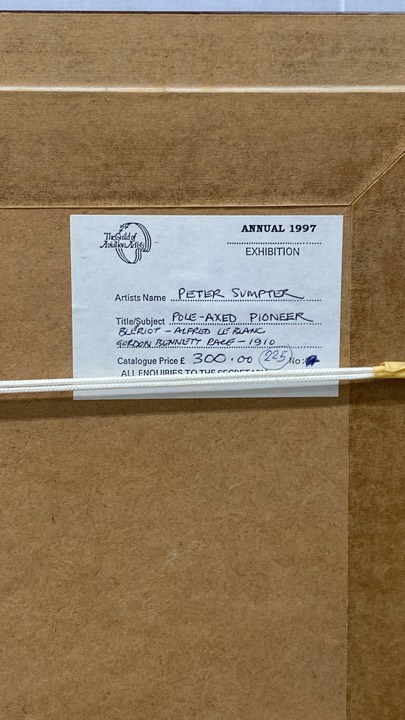 The Guild of
Aviation Artists
ANNUAL 1997
EXHIBITION
Artists Name PETER SUMPTER
Title/Subject POLE-AXED PIONEER
BLERIOT - ALFRED LE BLANC
GORDON BENNETT RACE - 1910
Catalogue Price £ 300.00 225 No:
ALL ENQUIRIES TO THE SECRETARY